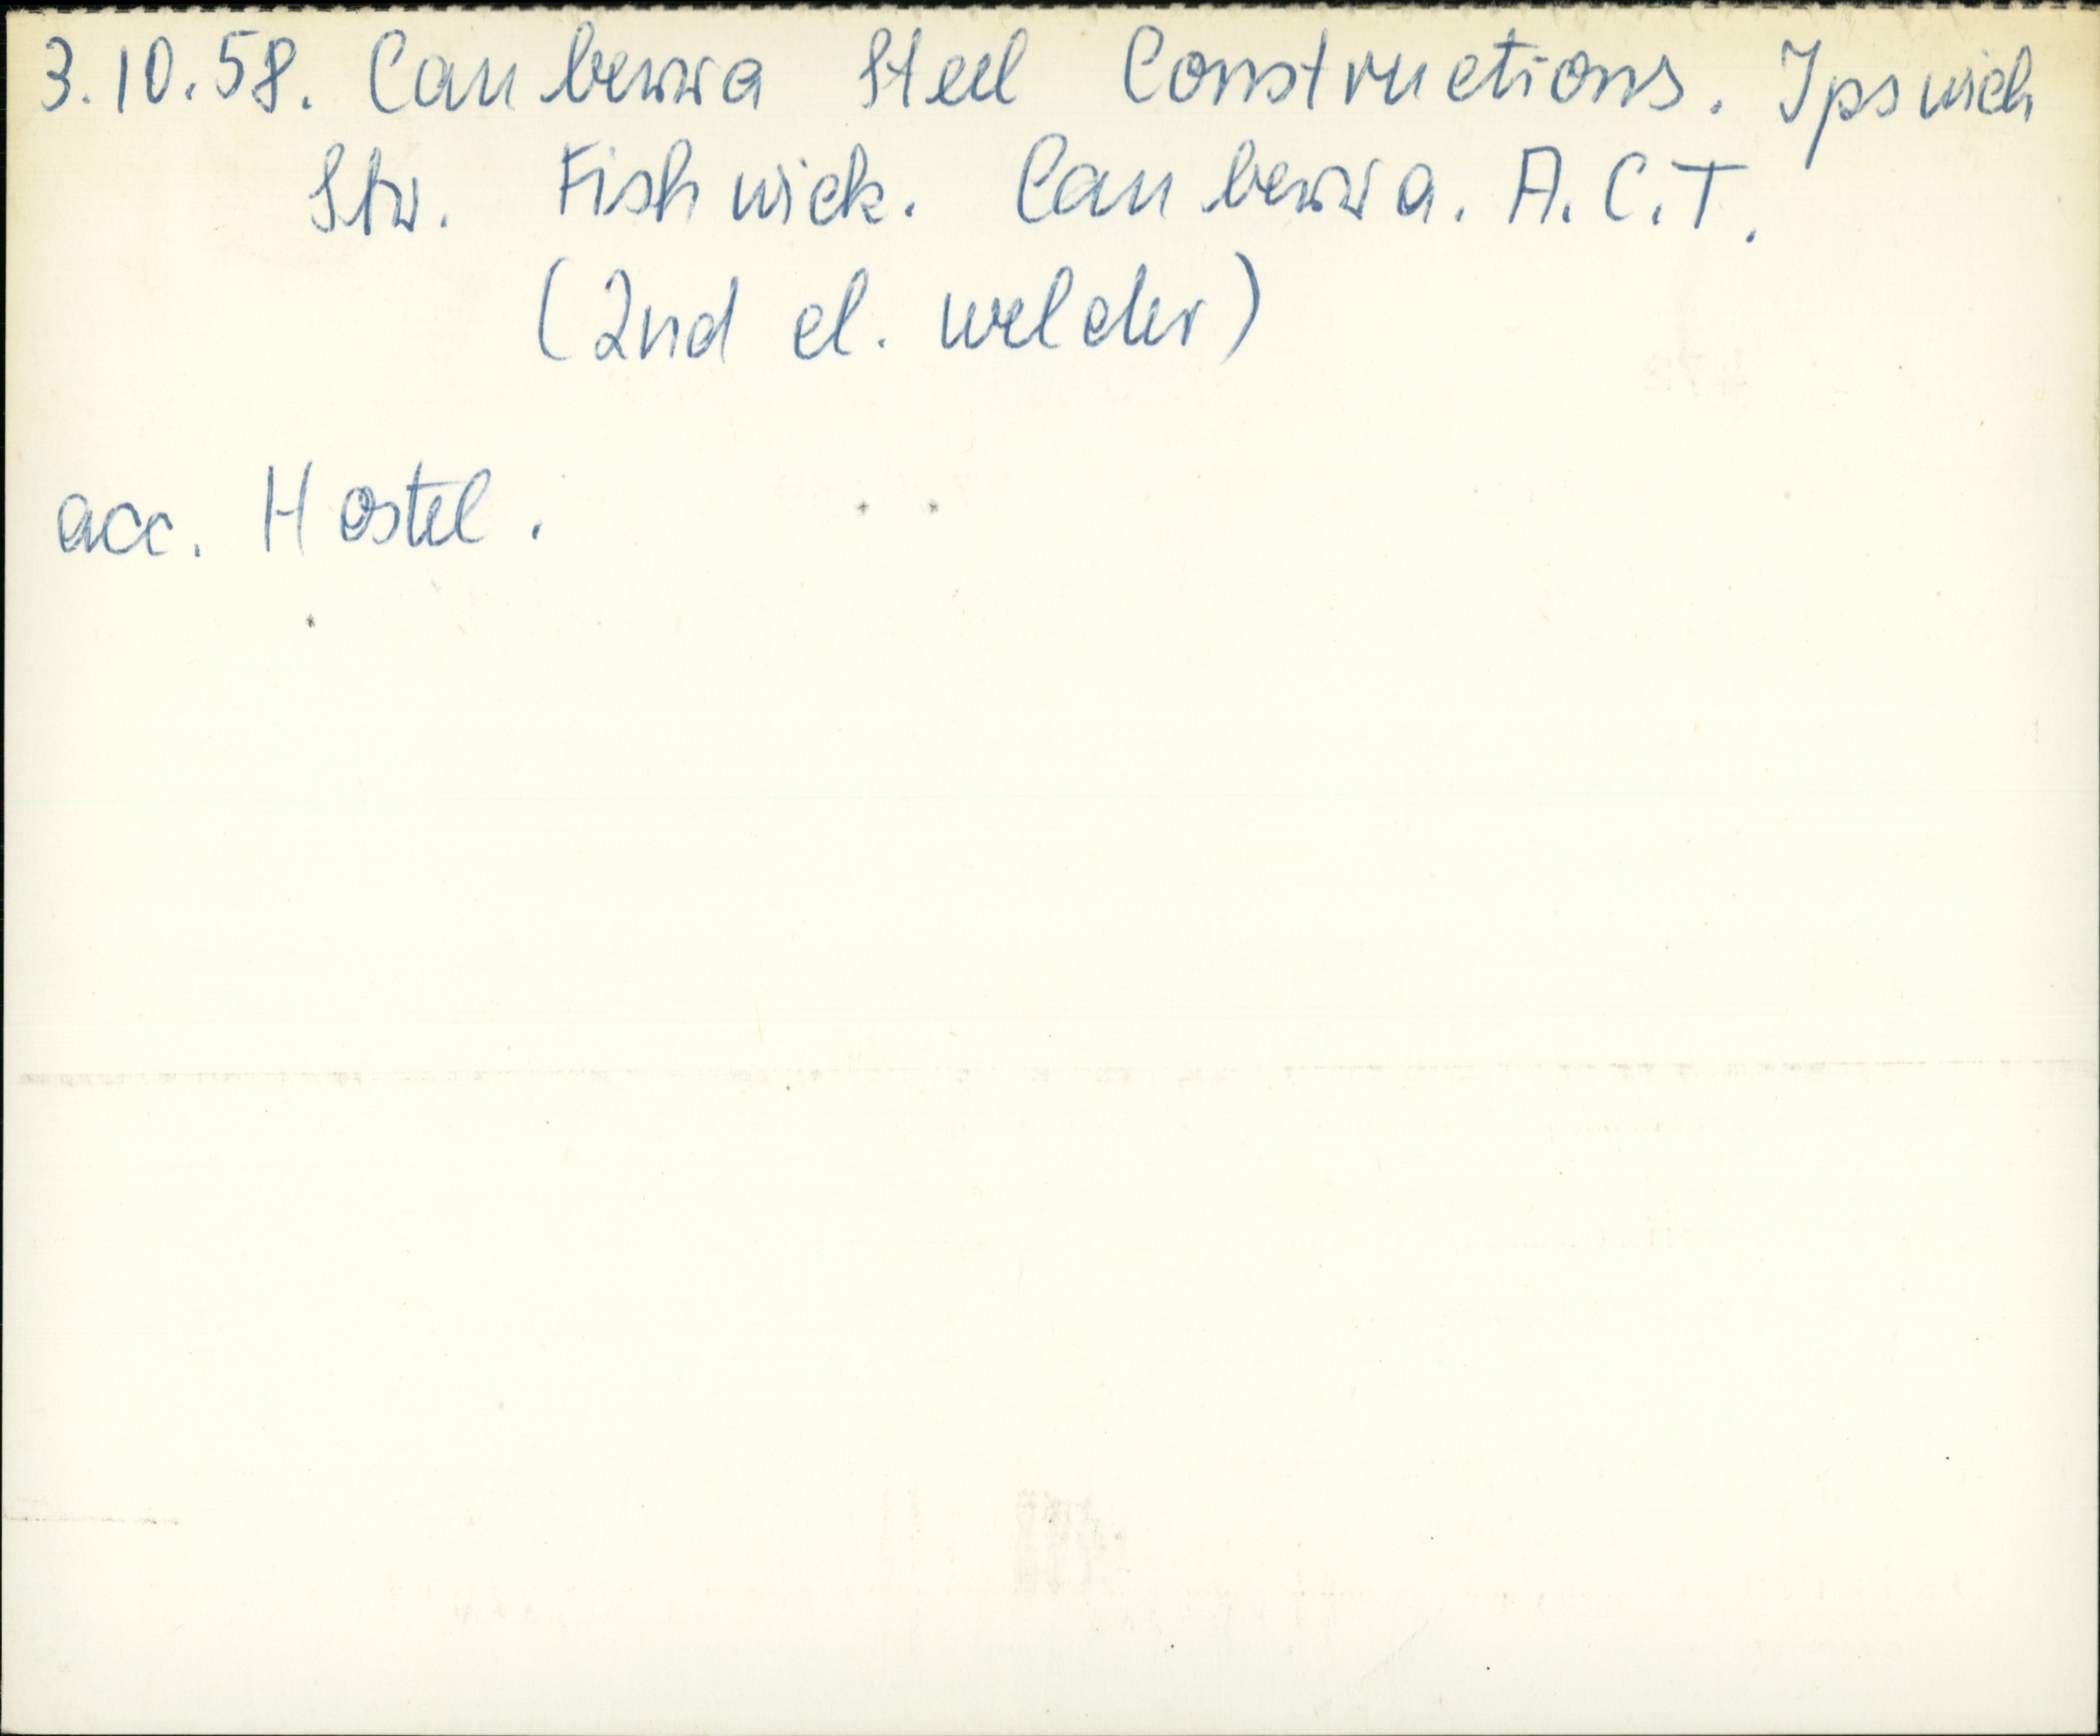 3.10.58. Canberra Steel Constructions. Ipswich
Str. Fishwick. Canberra. A.C.T.
(2nd el. welder)
acc. Hostel.